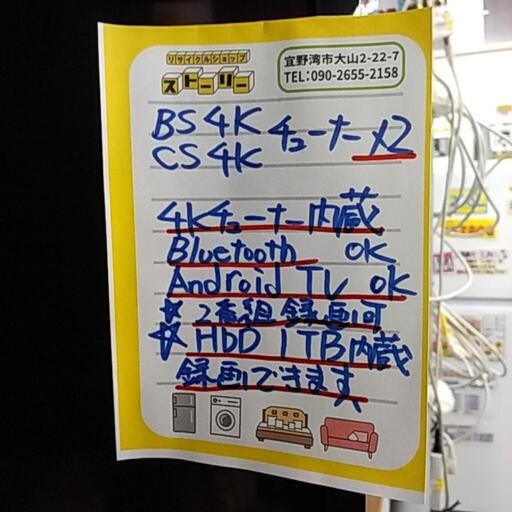 リサイクルショップ
ストーリー
宜野湾市大山2-22-7
TEL:090-2655-2158
BS4K チューナー×2
CS4K
4Kチューナー内蔵
Bluetooth OK
Android TV OK
☆ 2番組録画可
☆ HDD 1TB内蔵
録画できます